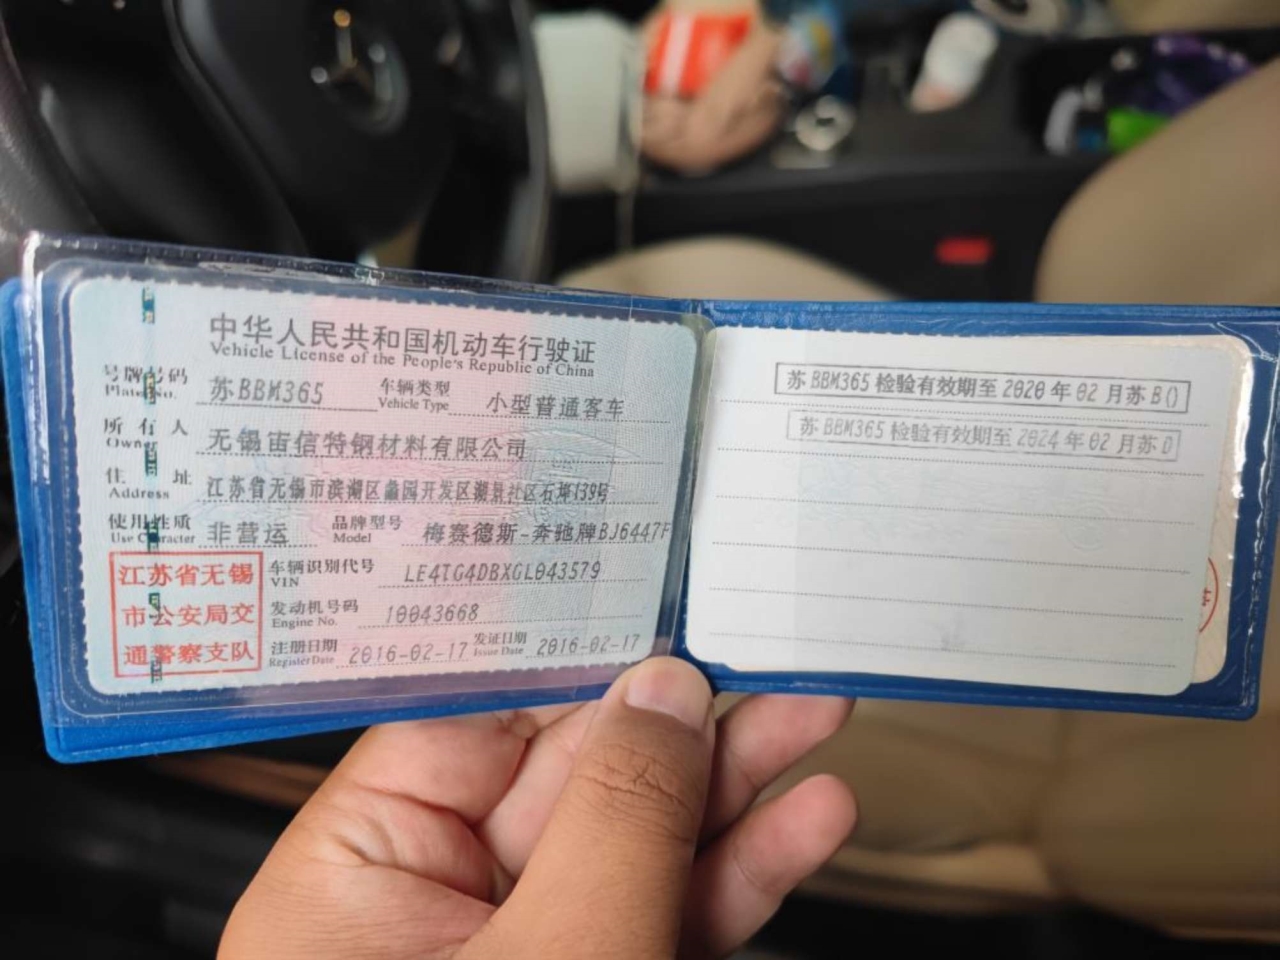 中华人民共和国机动车行驶证
Vehicle License of the People's Republic of China
号牌号码 苏BBM365 车辆类型 小型普通客车
Plate No. Vehicle Type
所有人 无锡宙信特钢材料有限公司
Owner
住址 江苏省无锡市滨湖区蠡园开发区湖景社区石埠139号
Address
使用性质 非营运 品牌型号 梅赛德斯-奔驰牌BJ6447F
Use Character Model
江苏省无锡
市公安局交
通警察支队
车辆识别代号 LE4TG4DBXGL043579
VIN
发动机号码 10043668
Engine No.
注册日期 2016-02-17 发证日期 2016-02-17
Register Date Issue Date
苏BBM365 检验有效期至 2020 年 02 月苏 B()
苏BBM365 检验有效期至 2024 年 02 月苏 D